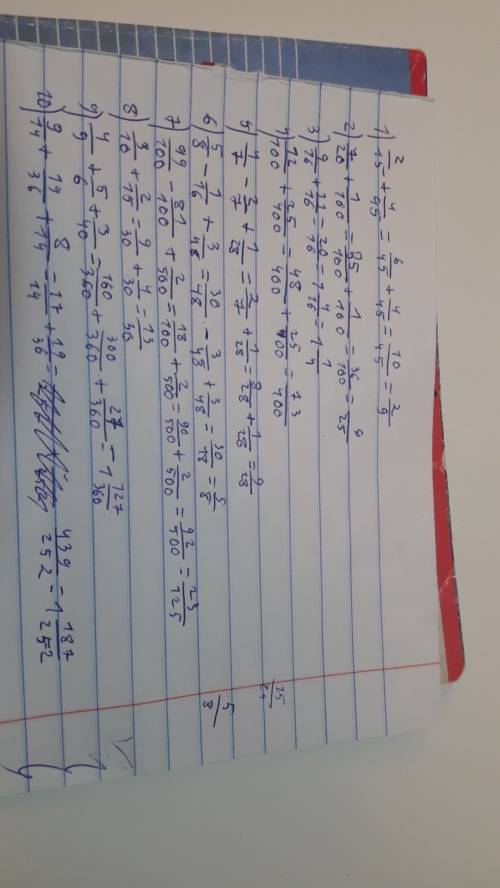 1) 2/15 + 4/45 = 6/45 + 4/45 = 10/45 = 2/9
2) 7/20 + 1/100 = 35/100 + 1/100 = 36/100 = 9/25
3) 9/16 + 11/16 = 20/16 = 1 4/16 = 1 1/4
4) 12/100 + 25/400 = 48/400 + 25/400 = 73/400
5) 4/7 - 2/7 + 1/28 = 2/7 + 1/28 = 8/28 + 1/28 = 9/28
6) 5/8 - 1/16 + 3/48 = 30/48 - 3/48 + 3/48 = 30/48 = 5/8
7) 99/100 - 81/100 + 2/500 = 18/100 + 2/500 = 90/500 + 2/500 = 92/500 = 23/125
8) 3/10 + 2/15 = 9/30 + 4/30 = 13/30
9) 4/9 + 5/6 + 3/40 = 160/360 + 300/360 + 27/360 = 1 127/360
10) 9/14 + 19/36 + 8/14 = 17/14 + 19/36 = 439/252 = 1 187/252
15/24
5/8